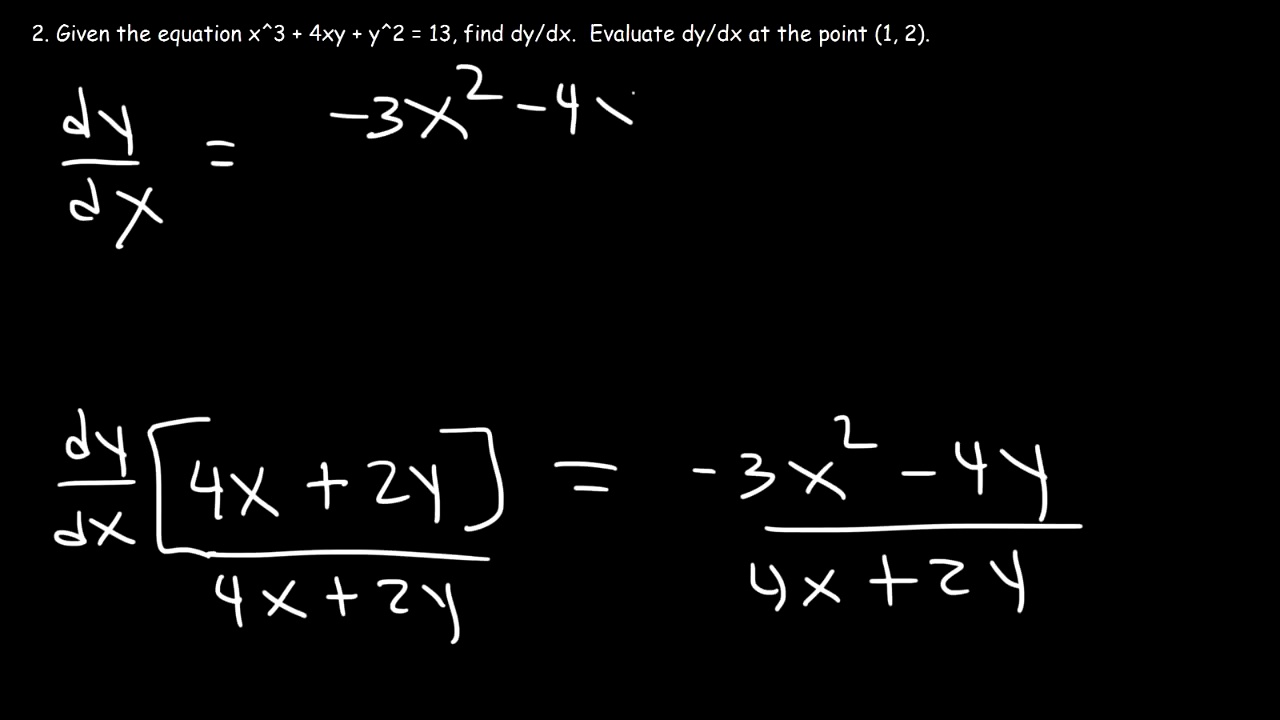 2. Given the equation x^3 + 4xy + y^2 = 13, find dy/dx. Evaluate dy/dx at the point (1, 2).
dy/dx = -3x² - 4
dy/dx [4x + 2y] / 4x + 2y = -3x² - 4y / 4x + 2y